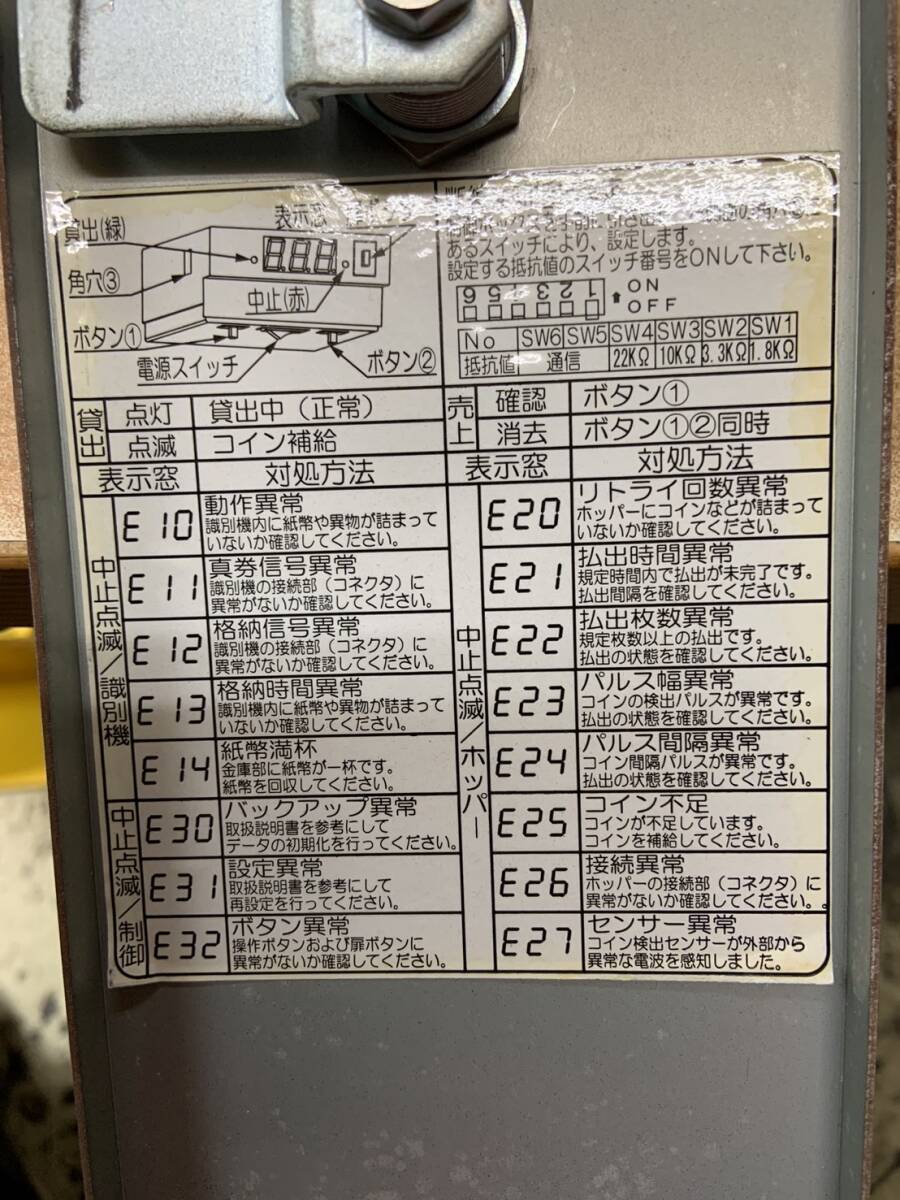 貸出(緑)
表示窓
角穴③
中止(赤)
ボタン①
電源スイッチ
ボタン②
あるスイッチにより、設定します。
設定する抵抗値のスイッチ番号をONして下さい。
6 5 4 3 2 1
ON
OFF
No SW6 SW5 SW4 SW3 SW2 SW1
抵抗値 通信 22KΩ 10KΩ 3.3KΩ 1.8KΩ
貸出
点灯 貸出中(正常)
点滅 コイン補給
売上
確認 ボタン①
消去 ボタン①②同時
表示窓 対処方法
中止点滅/識別機
E10 動作異常
識別機内に紙幣や異物が詰まって
いないか確認してください。
E11 真券信号異常
識別機の接続部(コネクタ)に
異常がないか確認してください。
E12 格納信号異常
識別機の接続部(コネクタ)に
異常がないか確認してください。
E13 格納時間異常
識別機内に紙幣や異物が詰まって
いないか確認してください。
E14 紙幣満杯
金庫部に紙幣が一杯です。
紙幣を回収してください。
中止点滅/制御
E30 バックアップ異常
取扱説明書を参考にして
データの初期化を行ってください。
E31 設定異常
取扱説明書を参考にして
再設定を行ってください。
E32 ボタン異常
操作ボタンおよび扉ボタンに
異常がないか確認してください。
表示窓 対処方法
中止点滅/ホッパー
E20 リトライ回数異常
ホッパーにコインなどが詰まって
いないか確認してください。
E21 払出時間異常
規定時間内で払出が未完了です。
払出間隔を確認してください。
E22 払出枚数異常
規定枚数以上の払出です。
払出の状態を確認してください。
E23 パルス幅異常
コインの検出パルスが異常です。
払出の状態を確認してください。
E24 パルス間隔異常
コイン間隔パルスが異常です。
払出の状態を確認してください。
E25 コイン不足
コインが不足しています。
コインを補給してください。
E26 接続異常
ホッパーの接続部(コネクタ)に
異常がないか確認してください。
E27 センサー異常
コイン検出センサーが外部から
異常な電波を感知しました。